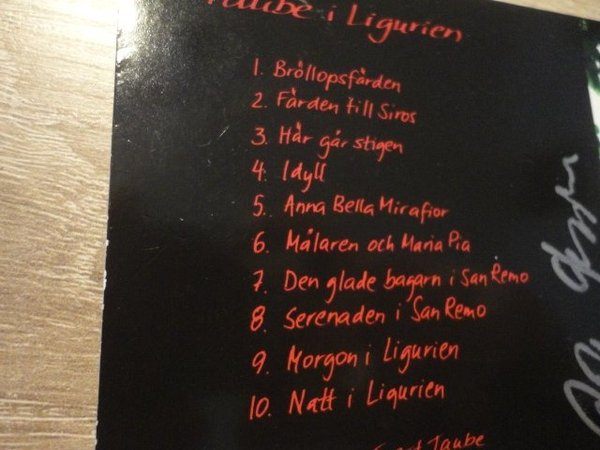 Taube i Ligurien
1. Bröllopsfärden
2. Färden till Siros
3. Här går stigen
4. Idyll
5. Anna Bella Mirafior
6. Målaren och Maria Pia
7. Den glade bagarn i San Remo
8. Serenaden i San Remo
9. Morgon i Ligurien
10. Natt i Ligurien
Taube